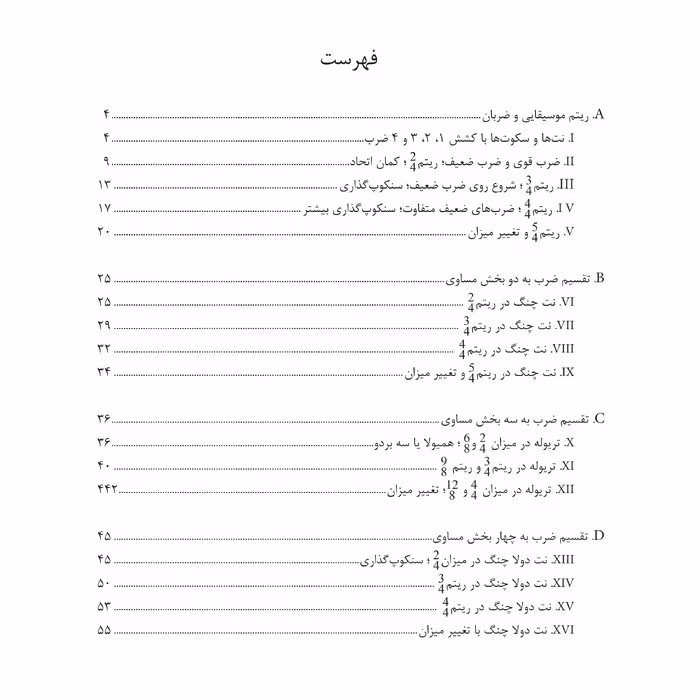 فهرست
A. ریتم موسیقایی و ضربان ۴
I. نت‌ها و سکوت‌ها با کشش ۱، ۲، ۳ و ۴ ضرب ۴
II. ضرب قوی و ضرب ضعیف؛ ریتم 2/4؛ کمان اتحاد ۹
III. ریتم 3/4؛ شروع روی ضرب ضعیف؛ سنکوپ‌گذاری ۱۳
I V. ریتم 4/4؛ ضرب‌های ضعیف متفاوت؛ سنکوپ‌گذاری بیشتر ۱۷
V. ریتم 5/4 و تغییر میزان ۲۰
B. تقسیم ضرب به دو بخش مساوی ۲۵
VI. نت چنگ در ریتم 2/4 ۲۵
VII. نت چنگ در ریتم 3/4 ۲۹
VIII. نت چنگ در ریتم 4/4 ۳۲
IX. نت چنگ در ریتم 5/4 و تغییر میزان ۳۴
C. تقسیم ضرب به سه بخش مساوی ۳۶
X. تریوله در میزان 2/4 و 6/8؛ همیولا یا سه بردو ۳۶
XI. تریوله در ریتم 3/4 و ریتم 9/8 ۴۰
XII. تریوله در میزان 4/4 و 12/8؛ تغییر میزان ۴۴۲
D. تقسیم ضرب به چهار بخش مساوی ۴۵
XIII. نت دولا چنگ در میزان 2/4؛ سنکوپ‌گذاری ۴۵
XIV. نت دولا چنگ در ریتم 3/4 ۵۰
XV. نت دولا چنگ در ریتم 4/4 ۵۳
XVI. نت دولا چنگ با تغییر میزان ۵۵